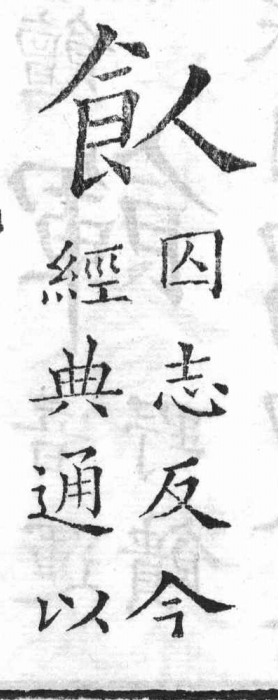 飤
囚志反今
經典通以